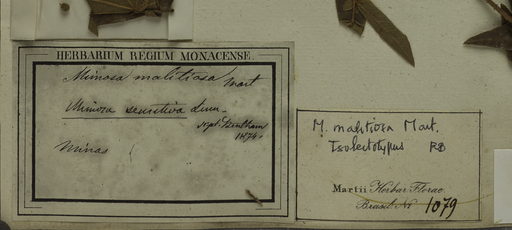 HERBARIUM REGIUM MONACENSE
Mimosa malitiosa Mart
Mimosa sensitiva Linn.
sept. Bentham
1874.
Minas
M. malitiosa Mart.
Isolectotypus RB
Martii Herbar. Florae
Brasil. Nr 1079